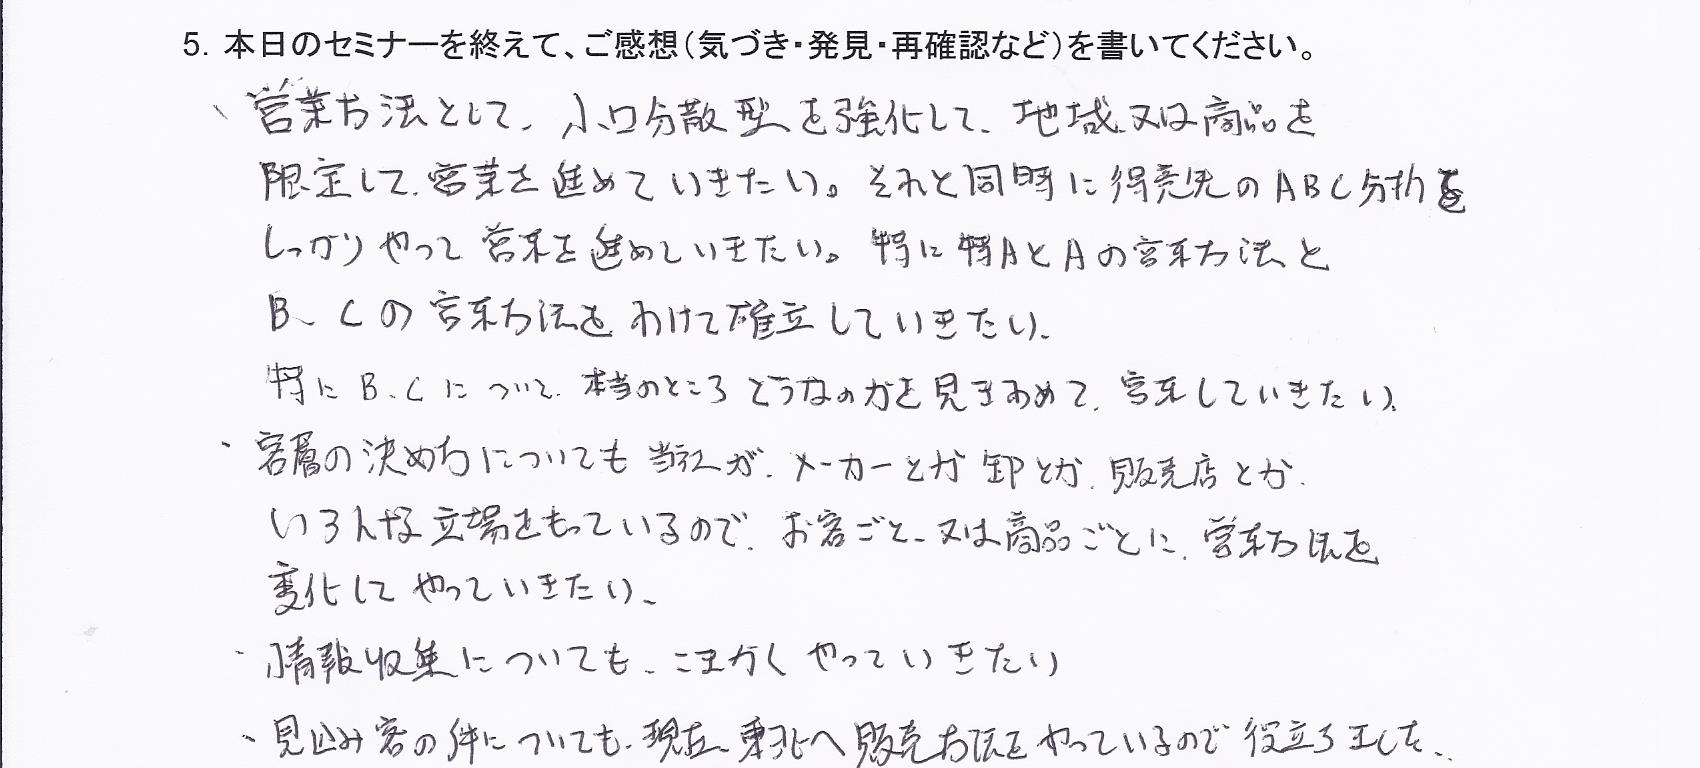 5. 本日のセミナーを終えて、ご感想(気づき・発見・再確認など)を書いてください。
、営業方法として、小口分散型を強化して、地域、又は商品を
限定して、営業を進めていきたい。それと同時に得意先のABC分析を
しっかりやって営業を進めていきたい。特に特AとAの営業方法と
B、Cの営業方法をわけて確立していきたい、
特にB、Cについて、本当のところどうなのかを見きわめて、営業していきたい、
・客層の決め方についても当社が、メーカーとか卸とか、販売店とか、
いろんな立場をもっているので、お客ごと、又は商品ごとに、営業方法を
変化してやっていきたい、
・情報収集についても、こまかくやっていきたい
・見込み客の件についても、現在、東北へ販売方法をやっているので役立ちました、